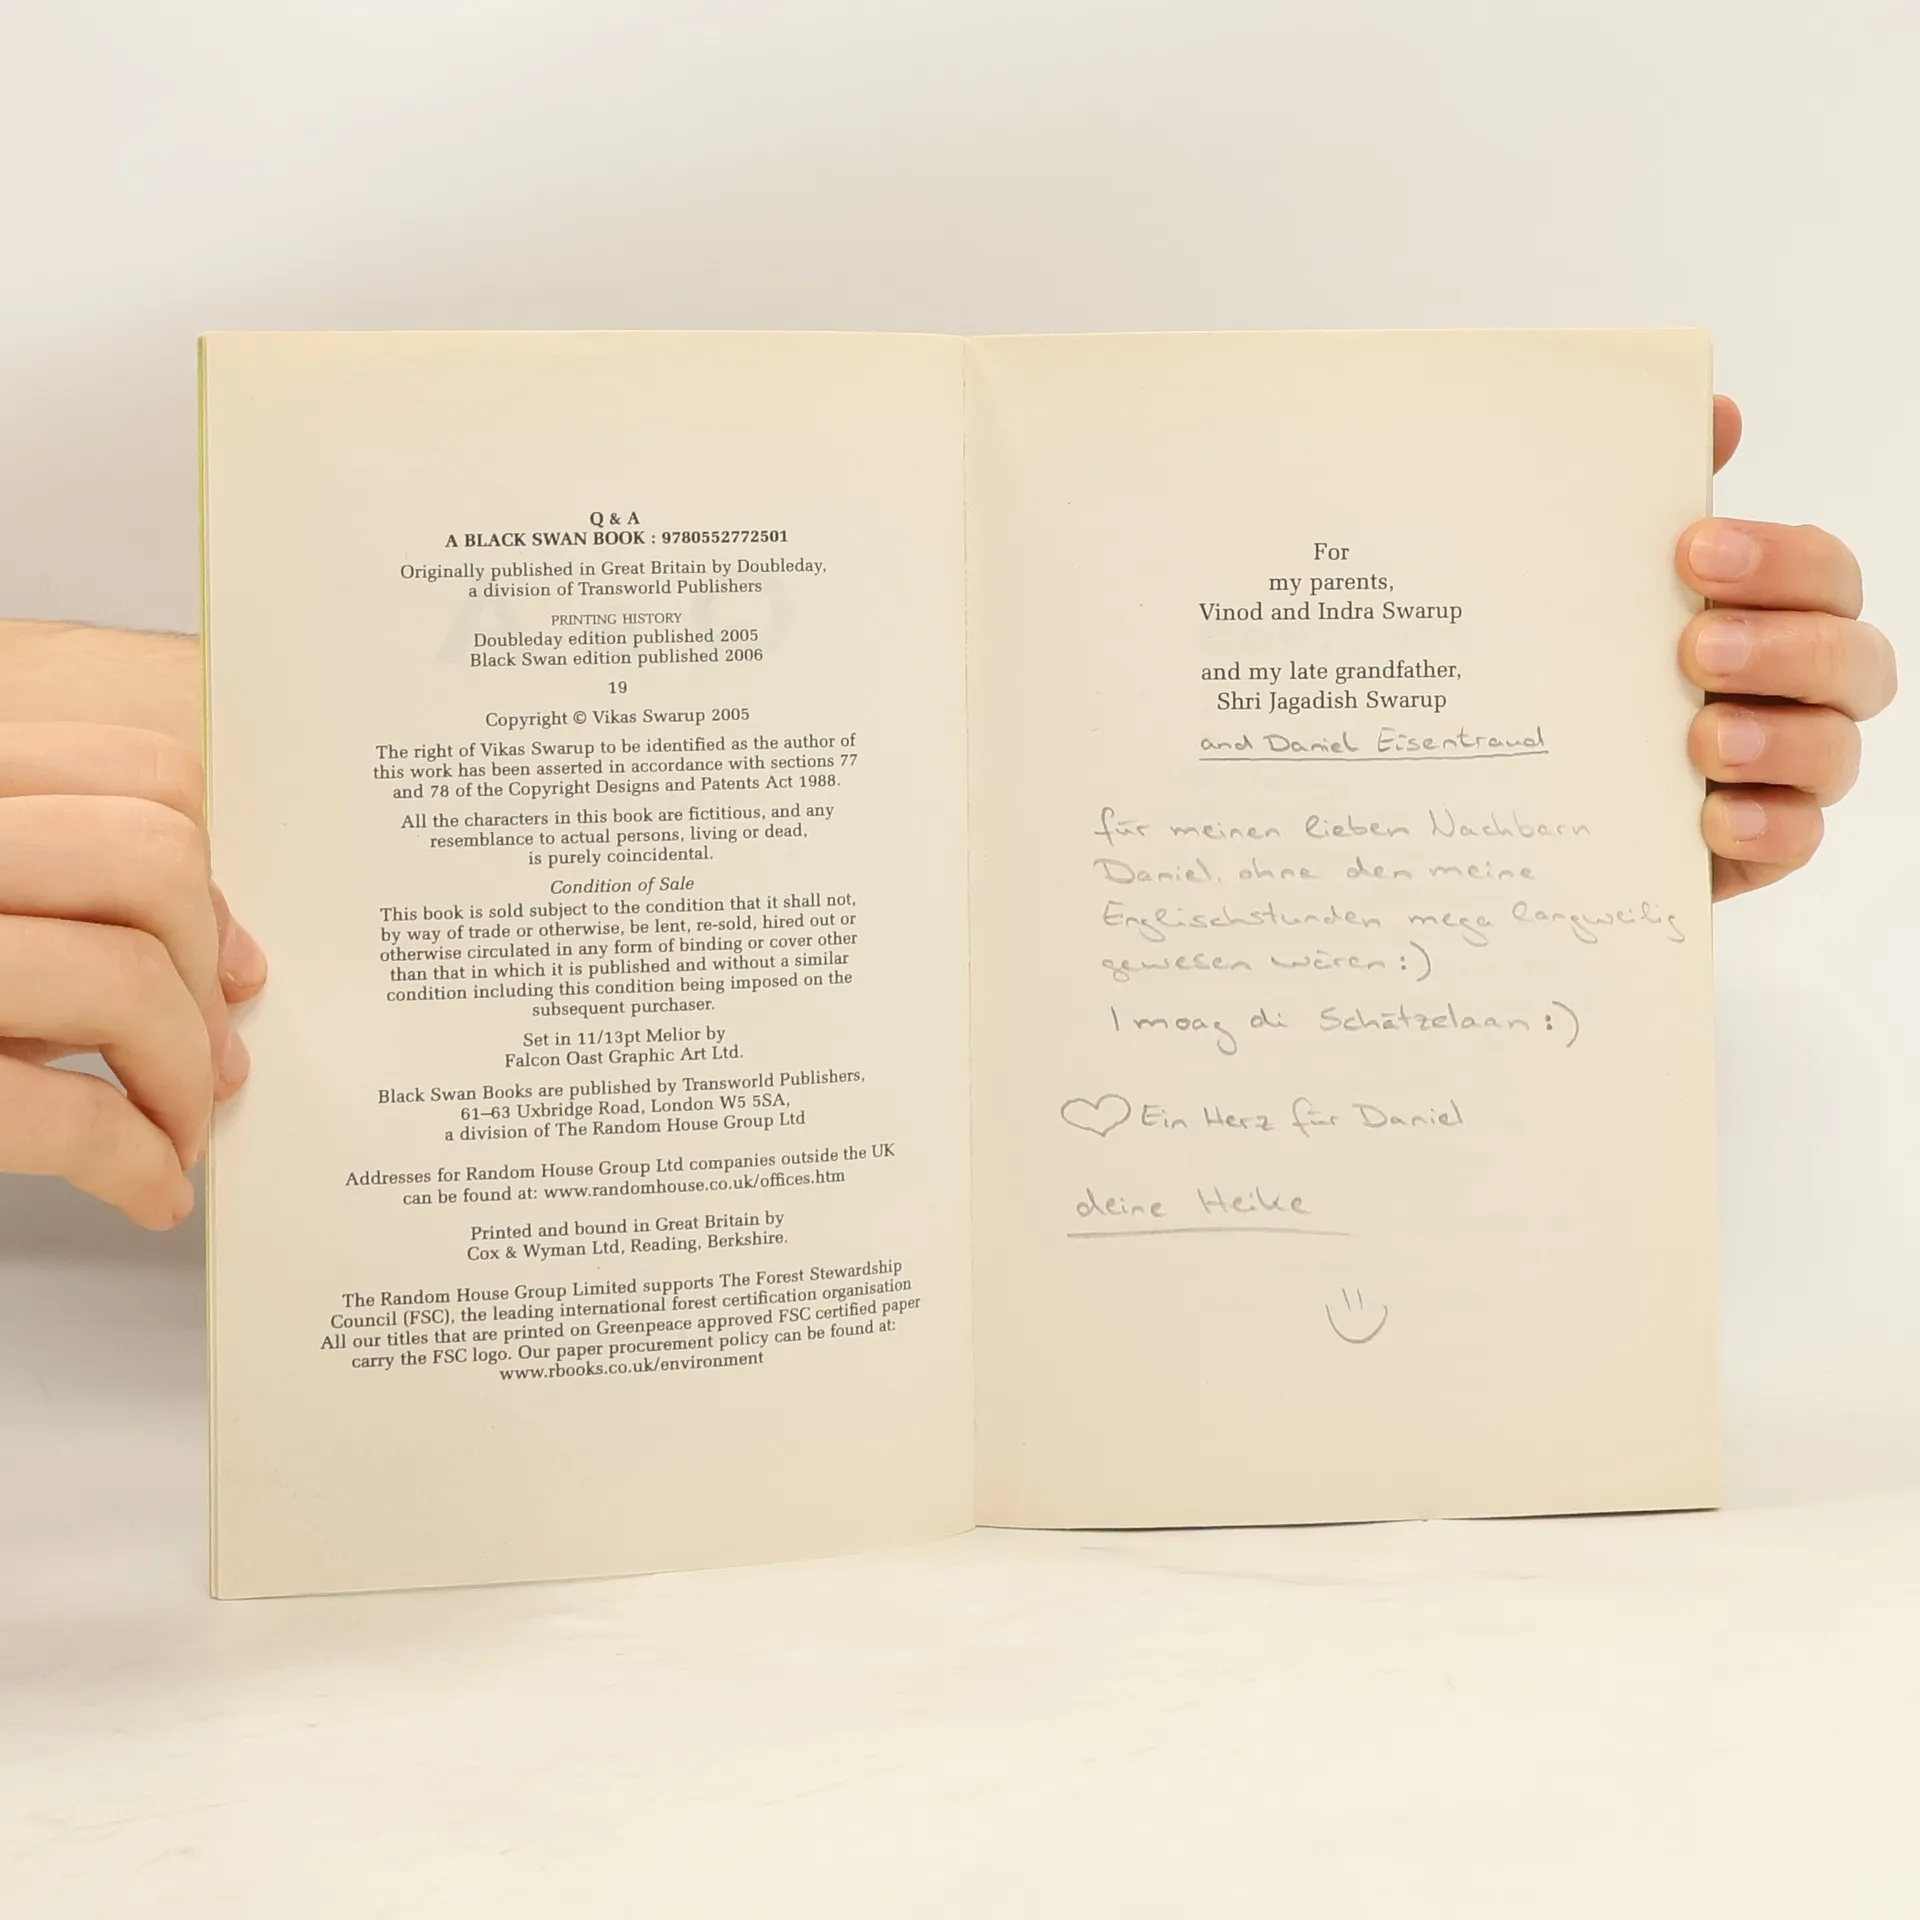 Q & A
A BLACK SWAN BOOK : 9780552772501
Originally published in Great Britain by Doubleday,
a division of Transworld Publishers
PRINTING HISTORY
Doubleday edition published 2005
Black Swan edition published 2006
19
Copyright © Vikas Swarup 2005
The right of Vikas Swarup to be identified as the author of
this work has been asserted in accordance with sections 77
and 78 of the Copyright Designs and Patents Act 1988.
All the characters in this book are fictitious, and any
resemblance to actual persons, living or dead,
is purely coincidental.
Condition of Sale
This book is sold subject to the condition that it shall not,
by way of trade or otherwise, be lent, re-sold, hired out or
otherwise circulated in any form of binding or cover other
than that in which it is published and without a similar
condition including this condition being imposed on the
subsequent purchaser.
Set in 11/13pt Melior by
Falcon Oast Graphic Art Ltd.
Black Swan Books are published by Transworld Publishers,
61–63 Uxbridge Road, London W5 5SA,
a division of The Random House Group Ltd
Addresses for Random House Group Ltd companies outside the UK
can be found at: www.randomhouse.co.uk/offices.htm
Printed and bound in Great Britain by
Cox & Wyman Ltd, Reading, Berkshire.
The Random House Group Limited supports The Forest Stewardship
Council (FSC), the leading international forest certification organisation
All our titles that are printed on Greenpeace approved FSC certified paper
carry the FSC logo. Our paper procurement policy can be found at:
www.rbooks.co.uk/environment
For
my parents,
Vinod and Indra Swarup
and my late grandfather,
Shri Jagadish Swarup
and Daniel Eisentraud
für meinen lieben Nachbarn
Daniel, ohne den meine
Englischstunden mega langweilig
gewesen wären :)
I moag di Schätzelaan :)
Ein Herz für Daniel
deine Heike